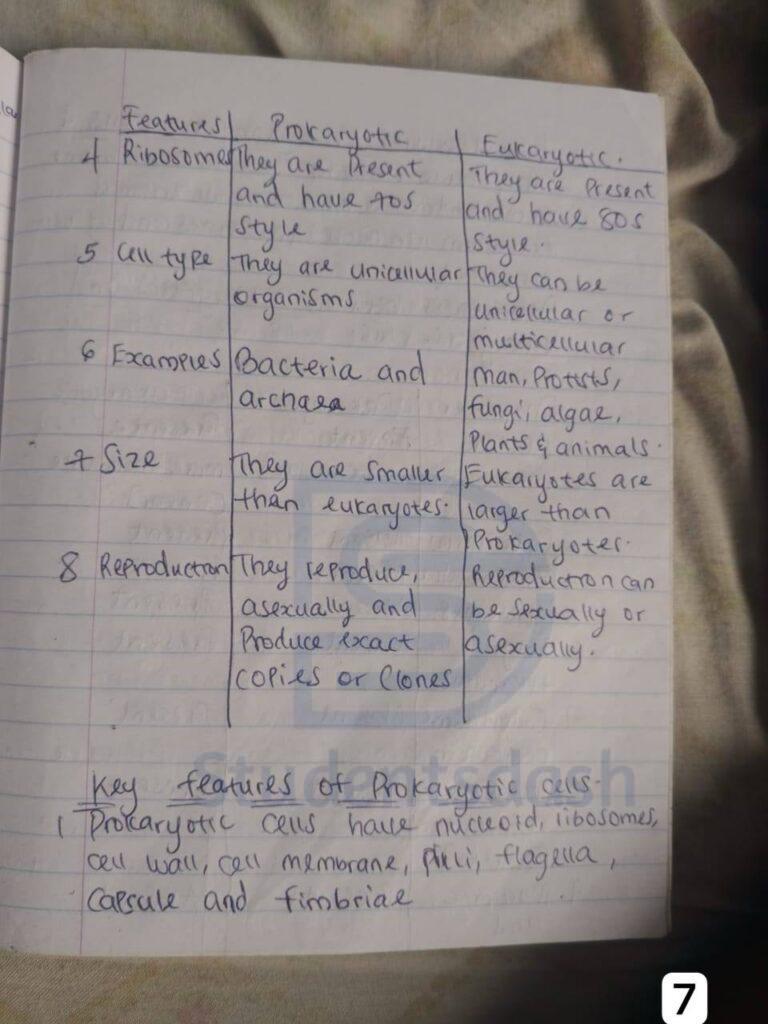 Features | Prokaryotic | Eukaryotic.
4 Ribosomes | They are Present | They are Present
and have 70s | and have 80s
style | style.
5 Cell type | They are unicellular | They can be
organisms | unicellular or
multicellular
6 Examples | Bacteria and | man, Protists,
archaea | fungi, algae,
Plants & animals.
7 Size | They are smaller | Eukaryotes are
than eukaryotes. | larger than
Prokaryotes.
8 Reproduction | They reproduce, | Reproduction can
asexually and | be sexually or
Produce exact | asexually.
copies or Clones
Studentsdash
Key features of Prokaryotic cells.
1 Prokaryotic cells have nucleoid, ribosomes,
cell wall, cell membrane, pili, flagella,
Capsule and fimbriae
7